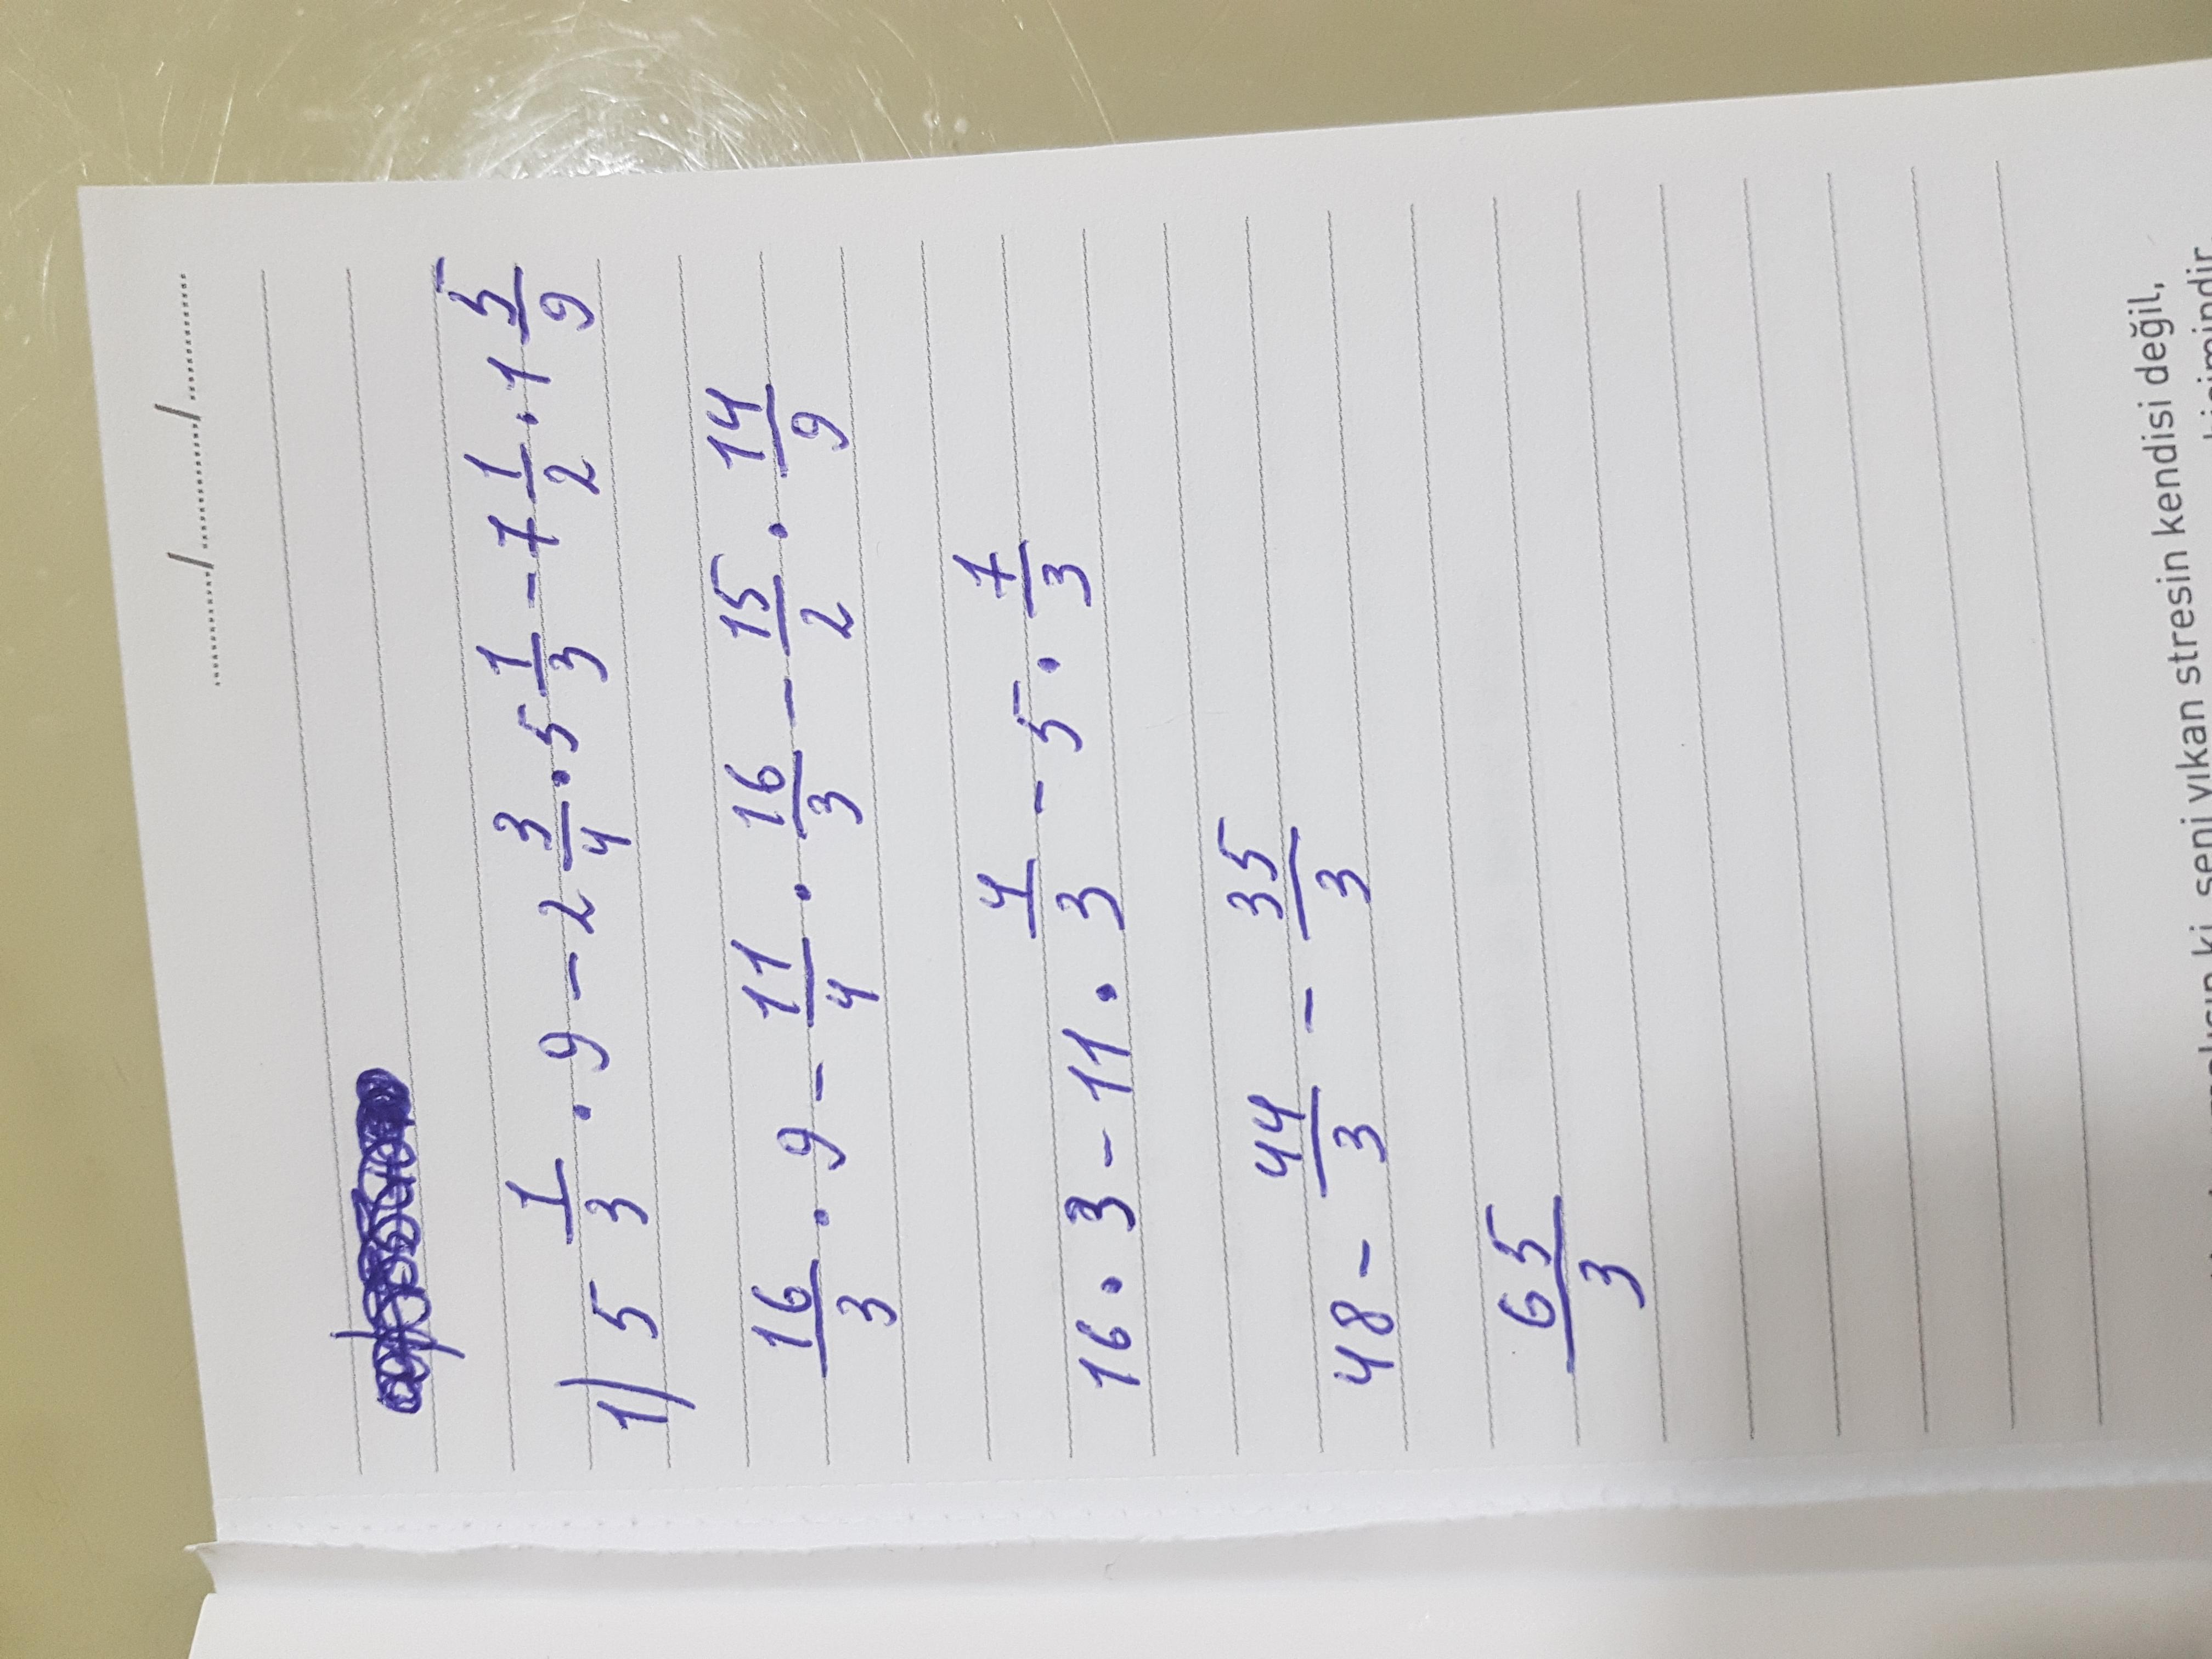 ........../........../..........
1) 5 1/3 · 9 - 2 3/4 · 5 1/3 - 7 1/2 · 1 5/9
16/3 · 9 - 11/4 · 16/3 - 15/2 · 14/9
16 · 3 - 11 · 4/3 - 5 · 7/3
48 - 44/3 - 35/3
65/3
ki, seni yıkan stresin kendisi değil,